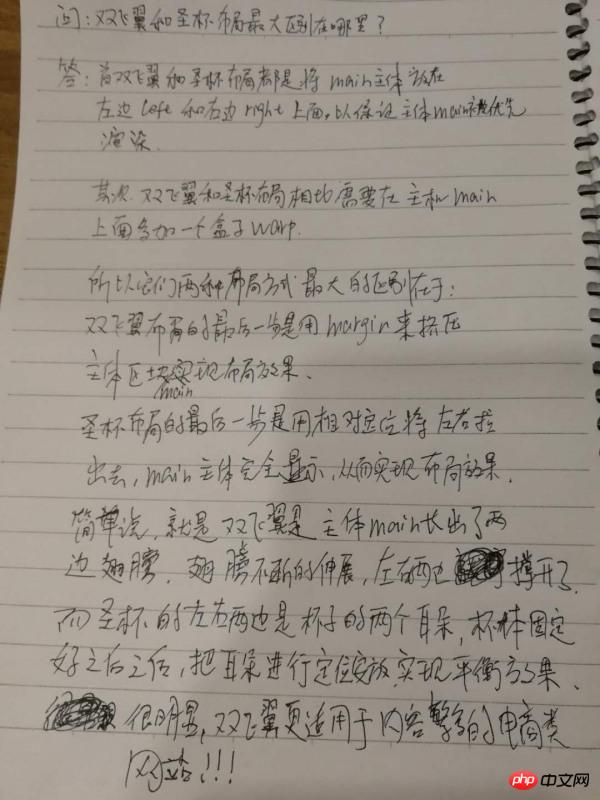 问:双飞翼和圣杯布局最大区别在哪里?
答:首双飞翼和圣杯布局都是将main主体放在
左边left和右边right上面,以保证主体main被优先
渲染.
其次.双飞翼和圣杯布局相比需要在主体main
上面多加一个盒子warp.
所以它们两种布局方式最大的区别在于:
双飞翼布局的最后一步是用margin来挤压
主体区块实现布局效果.
main
圣杯布局的最后一步是用相对定位将左右拉
出去,main主体完全显示,从而实现布局效果.
简单说,就是双飞翼是主体main长出了两
边翅膀.翅膀不断的伸展,左右两边撑开了.
而圣杯的左右两边是杯子的两个耳朵,杯体固定
好之后之后,把耳朵进行定位安放.实现平衡效果.
很明显,双飞翼更适用于内容繁多的电商类
网站!!!
php 中文网